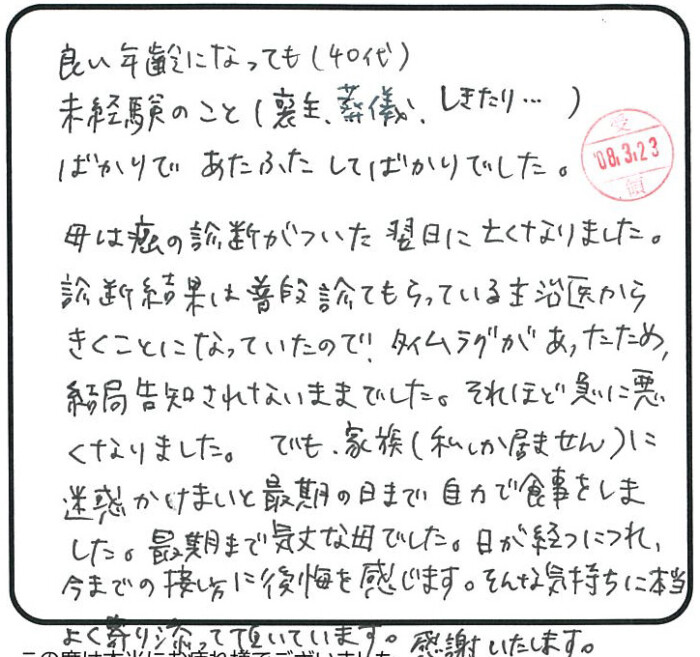 良い年齢になっても(40代)
未経験のこと(喪主、葬儀、しきたり…)
ばかりで あたふたしてばかりでした。
受
'08.3.23
領
母は癌の診断がついた翌日に亡くなりました。
診断結果は普段診てもらっている主治医から
きくことになっていたので、タイムラグがあったため、
結局告知されないままでした。それほど急に悪
くなりました。 でも、家族(私しか居ません)に
迷惑かけまいと最期の日まで自力で食事をしま
した。最期まで気丈な母でした。日が経つにつれ、
今までの接し方に後悔を感じます。そんな気持ちに本当
よく寄り添って頂いています。感謝いたします。
この度は本当にお疲れ様でございました